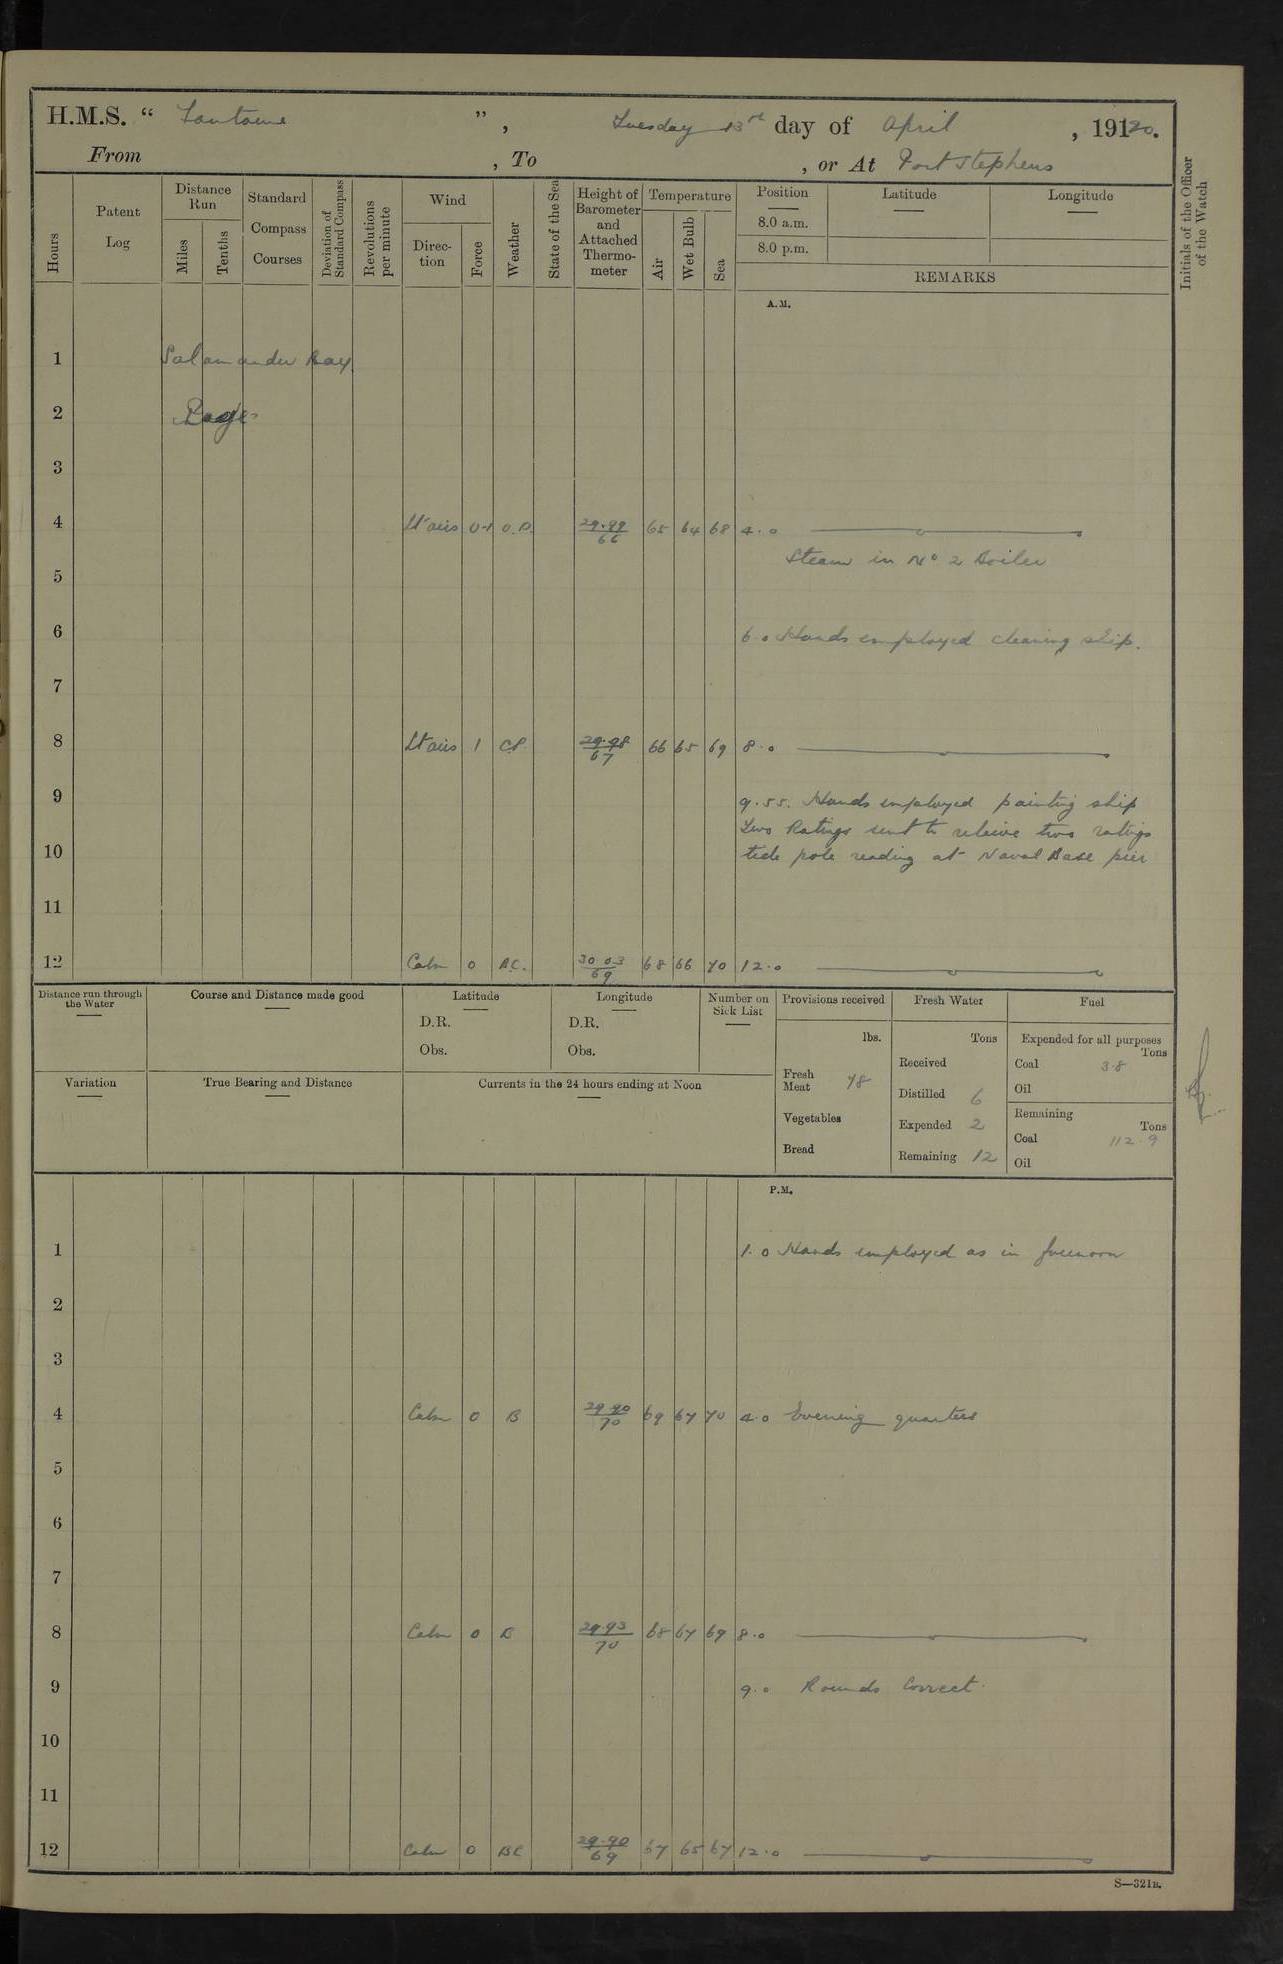 H.M.S. “ Fantome ”, Tuesday 13rd day of April, 19120.
From , To , or At Port Stephens
Hours Patent Log Distance Run Miles Tenths Standard Compass Courses Deviation of Standard Compass Revolutions per minute Wind Direc-tion Force Weather State of the Sea Height of Barometer and Attached Thermo-meter Temperature Air Wet Bulb Sea Position 8.0 a.m. 8.0 p.m. Latitude Longitude
REMARKS
Initials of the Officer of the Watch
A.M.
1 Salamander Bay
2
3
4 Lt airs 0-1 29.99 66 65 64 68 4.0
Steam in No 2 Boiler
5
6 6.0 Hands employed cleaning ship.
7
8 Lt airs 1 CP 29.98 67 66 65 69 8.0
9 9.55. Hands employed painting ship
Two Ratings sent to relieve two ratings
10 tide pole reading at Naval Base pier
11
12 Calm 0 B.C. 30 03 69 68 66 70 12.0
Distance run through the Water Course and Distance made good Latitude Longitude Number on Sick List Provisions received Fresh Water Fuel
D.R. D.R. lbs. Tons Expended for all purposes Tons
Obs. Obs. Received Coal 3.8
Variation True Bearing and Distance Currents in the 24 hours ending at Noon
Fresh Meat 78 Distilled 6 Oil
Vegetables Expended 2 Remaining Tons
Coal 112.9
Bread Remaining 12 Oil
P.M.
1 1.0 Hands employed as in forenoon
2
3
4 Calm 0 B 29 90 70 69 67 70 4.0 Evening quarters
5
6
7
8 Calm 0 B 29.93 70 68 67 69 8.0
9 9.0 Rounds Correct.
10
11
12 Calm 0 BC 29.90 69 67 65 67 12.0
S—321B.